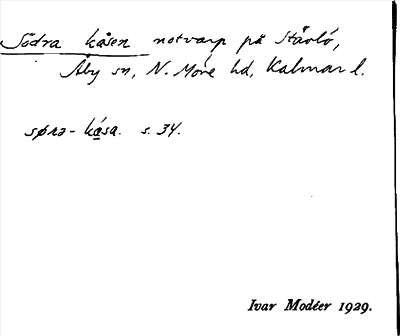 Södra kåsen notvarp på Ståvlö,
Åby sn, N. Möre hd, Kalmar l.
sørə - kåsa. s. 34.
Ivar Modéer 1929.